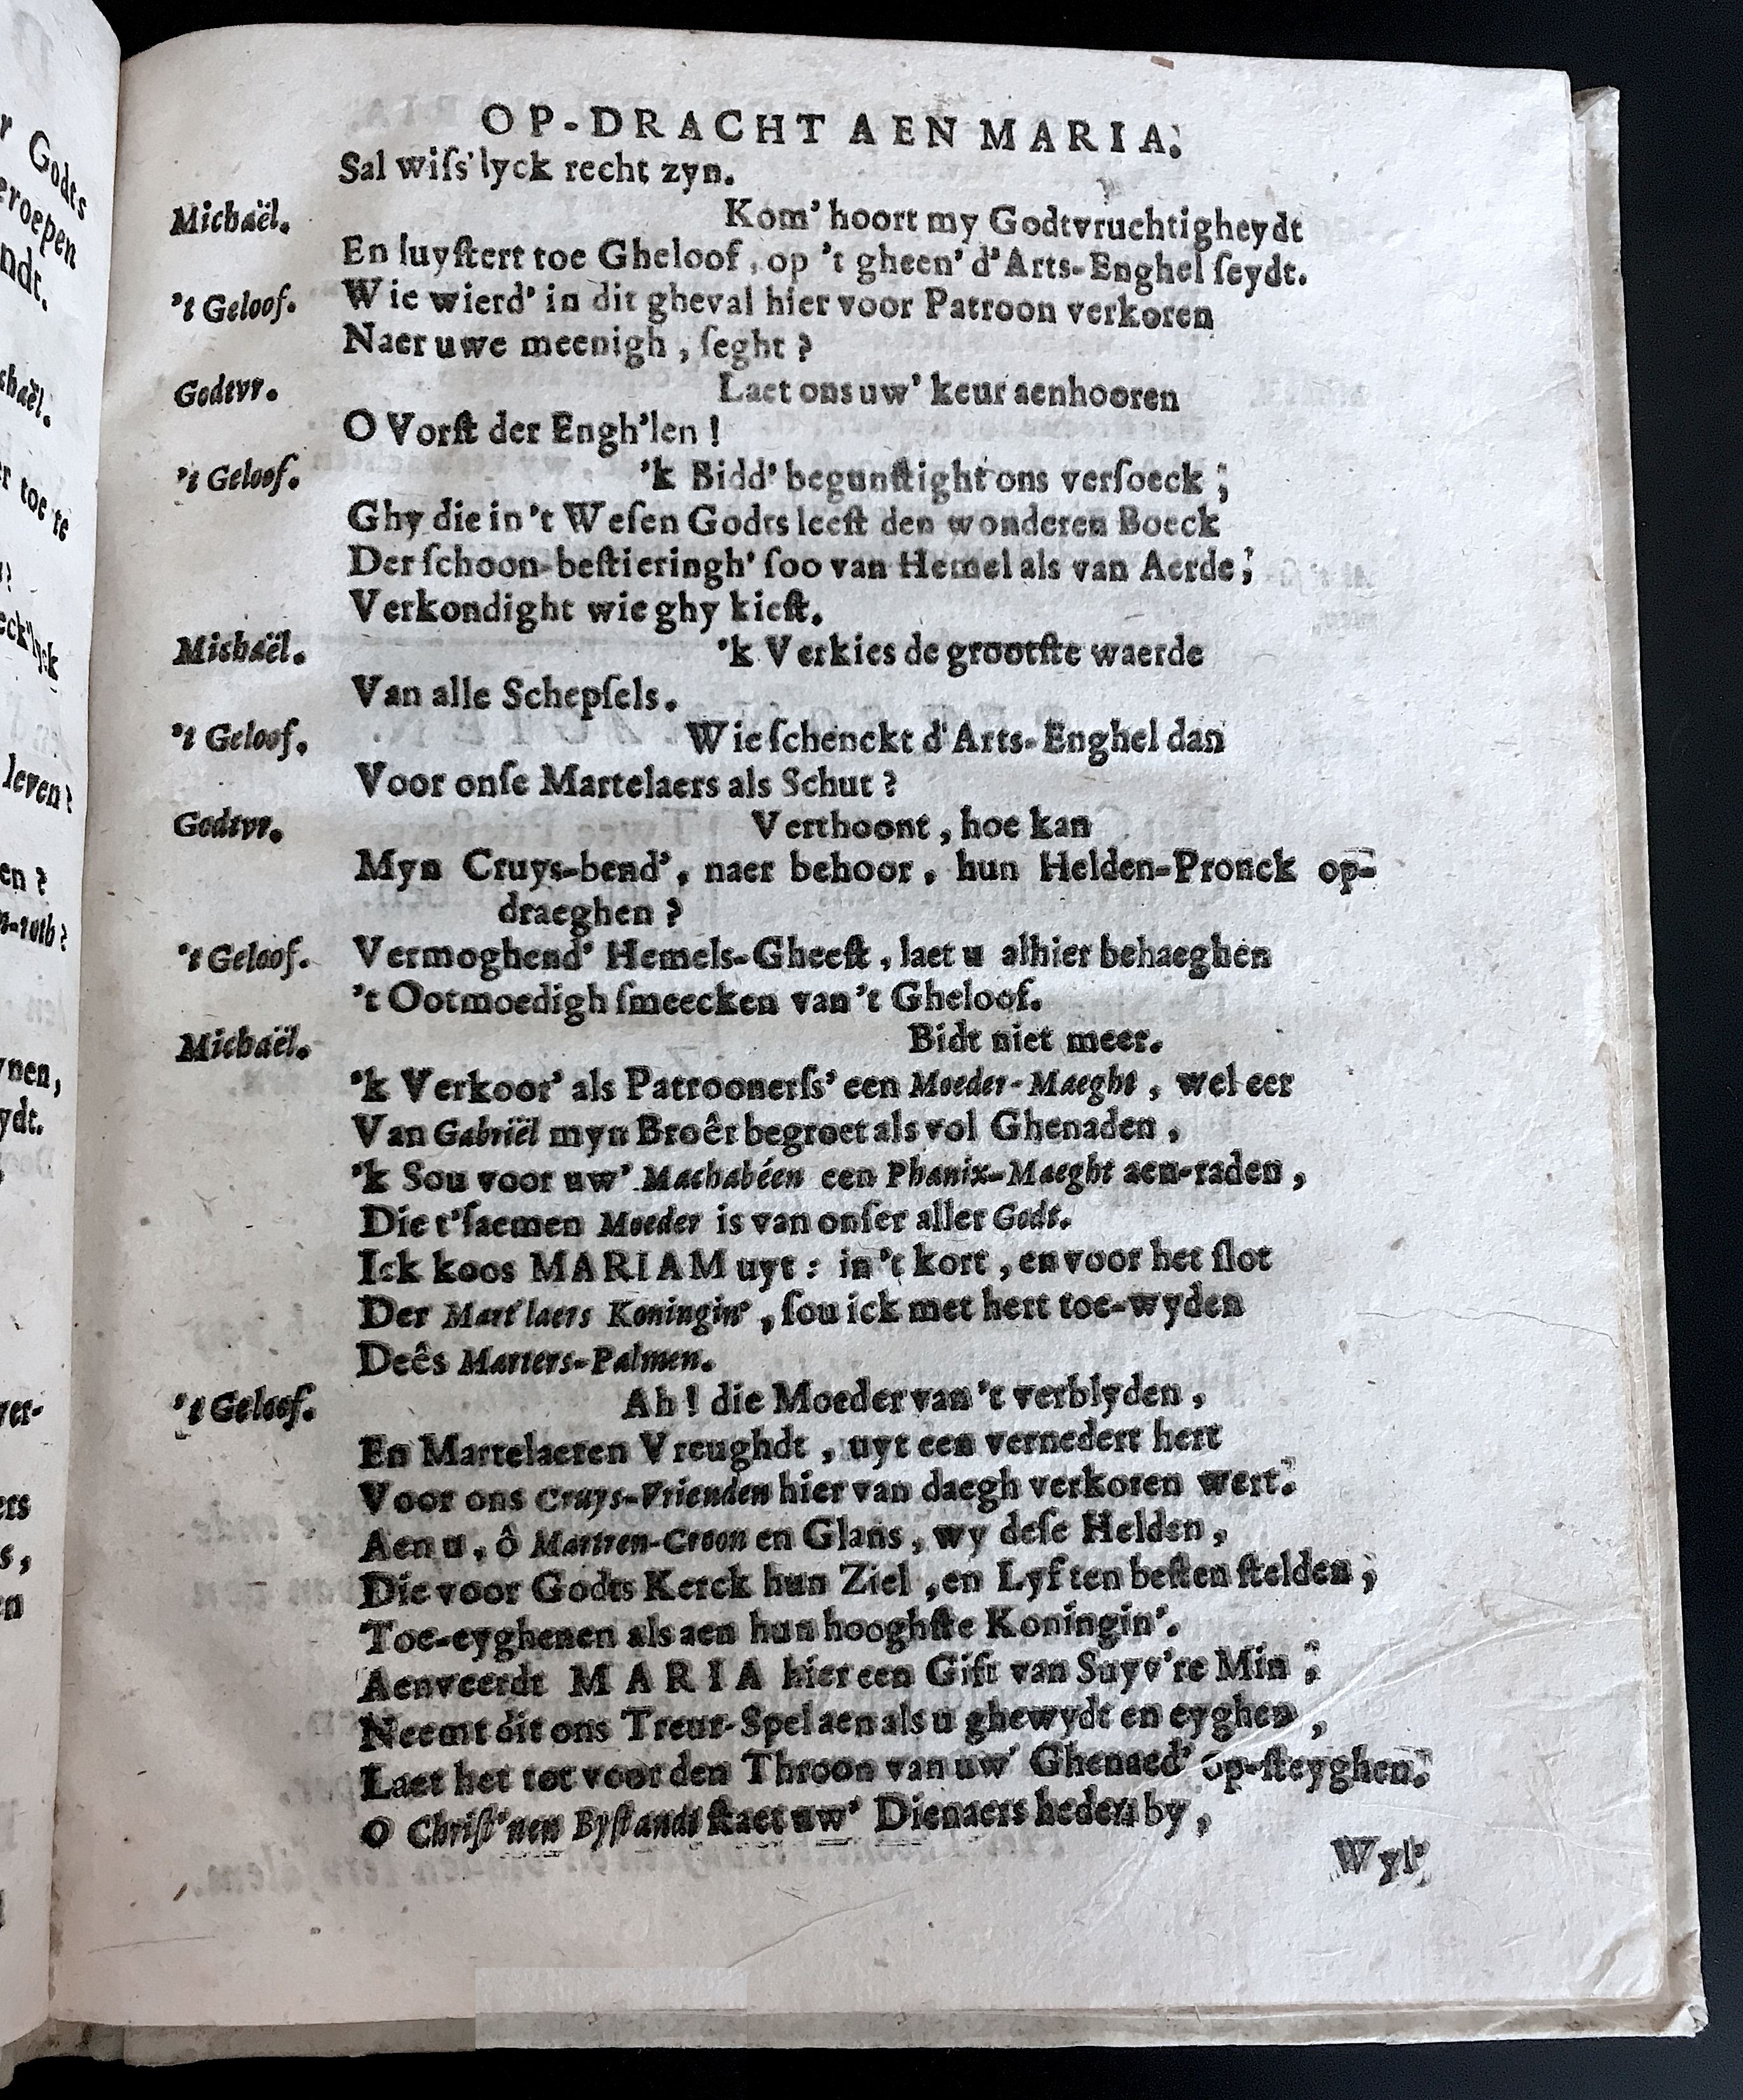 OP-DRACHT AEN MARIA.
Sal wiſs'lyck recht zyn.
Michaël. Kom' hoort my Godtvruchtigheydt
En luyſtert toe Gheloof, op 't gheen' d'Arts-Enghel ſeydt.
't Geloof. Wie wierd' in dit gheval hier voor Patroon verkoren
Naer uwe meenigh, ſeght ?
Godtvr. Laet ons uw' keur aenhooren
O Vorſt der Engh'len !
't Geloof. 'k Bidd' begunſtight ons verſoeck ;
Ghy die in 't Weſen Godts leeſt den wonderen Boeck
Der ſchoon-beſtieringh' ſoo van Hemel als van Aerde ;
Verkondight wie ghy kieſt.
Michaël. 'k Verkies de grootſte waerde
Van alle Schepſels.
't Geloof. Wie ſchenckt d'Arts-Enghel dan
Voor onſe Martelaers als Schut ?
Godtvr. Verthoont, hoe kan
Myn Cruys-bend', naer behoor, hun Helden-Pronck op-
draeghen ?
't Geloof. Vermoghend' Hemels-Gheeſt, laet u alhier behaeghen
't Ootmoedigh ſmeecken van 't Gheloof.
Michaël. Bidt niet meer.
'k Verkoor' als Patroonerſs' een Moeder-Maeght, wel eer
Van Gabriël myn Broêr begroet als vol Ghenaden,
'k Sou voor uw' Machabéen een Phanix-Maeght aen-raden,
Die t'ſaemen Moeder is van onſer aller Godt.
Ick koos MARIAM uyt : in 't kort, en voor het ſlot
Der Mart'laers Koningin', ſou ick met hert toe-wyden
Deês Marters-Palmen.
't Geloof. Ah ! die Moeder van 't verblyden,
En Martelaeren Vreughdt, uyt een vernedert hert
Voor ons Cruys-Vrienden hier van daegh verkoren wert.
Aen u, ô Martren-Croon en Glans, wy deſe Helden,
Die voor Godts Kerck hun Ziel, en Lyf ten beſten ſtelden ;
Toe-eyghenen als aen hun hooghſte Koningin'.
Aenveerdt MARIA hier een Gift van Suyv're Min ;
Neemt dit ons Treur-Spel aen als u ghewydt en eyghen,
Laet het tot voor den Throon van uw' Ghenaed' op-ſteyghen.
O Chriſt'nen Byſtandt ſtaet uw' Dienaers heden by,
Wyl'
r Godts
eroepen
ndt.
chaël.
r toe te
eck'lyck
leven ?
en ?
ynen,
ydt.
ver-
ers
s,
en